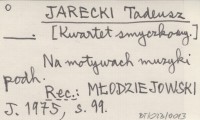 JARECKI Tadeusz
[Kwartet smyczkowy.]
Na motywach muzyki
podh.
Rec.: MŁODZIEJOWSKI
J. 1975, s. 99.